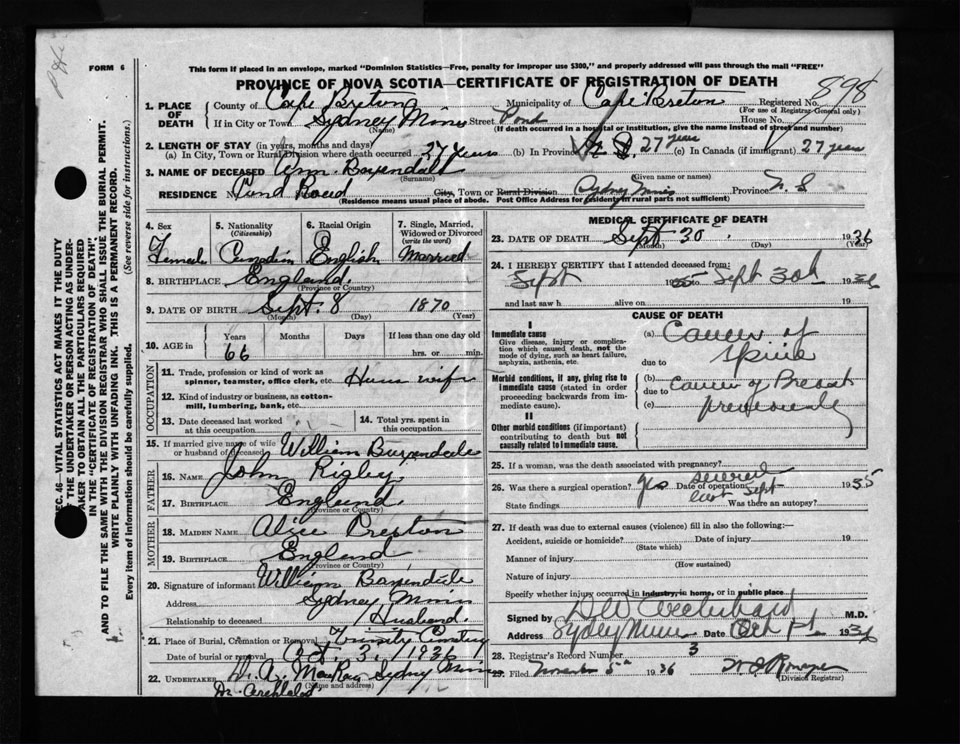 FORM 6
This form if placed in an envelope, marked "Dominion Statistics—Free, penalty for improper use $300," and properly addressed will pass through the mail "FREE"
PROVINCE OF NOVA SCOTIA—CERTIFICATE OF REGISTRATION OF DEATH
898
1. PLACE OF DEATH
County of Cape Breton Municipality of Cape Breton Registered No.
(For use of Registrar-General only)
If in City or Town Sydney Mines Street Pond House No.
(Name) (If death occurred in a hospital or institution, give the name instead of street and number)
2. LENGTH OF STAY (in years, months and days)
(a) In City, Town or Rural Division where death occurred 27 years (b) In Province 27 years (c) In Canada (if immigrant) 27 years
3. NAME OF DECEASED Ann Baxendale
(Surname) (Given name or names)
RESIDENCE Pond Road City, Town or Rural Division Sydney Mines Province N. S
(Residence means usual place of abode. Post Office Address for residents in rural parts not sufficient)
4. Sex Female
5. Nationality (Citizenship) Canadian
6. Racial Origin English
7. Single, Married, Widowed or Divorced (write the word) Married
8. BIRTHPLACE England
(Province or Country)
9. DATE OF BIRTH Sept. 8 1870
(Month) (Day) (Year)
10. AGE in Years 66 Months Days If less than one day old hrs. or min.
OCCUPATION
11. Trade, profession or kind of work as spinner, teamster, office clerk, etc. House wife
12. Kind of industry or business, as cotton-mill, lumbering, bank, etc.
13. Date deceased last worked at this occupation
14. Total yrs. spent in this occupation
15. If married give name of wife or husband of deceased William Baxendale
FATHER
16. NAME John Rigley
17. BIRTHPLACE England
(Province or Country)
MOTHER
18. MAIDEN NAME Alice Preston
19. BIRTHPLACE England
(Province or Country)
20. Signature of informant William Baxendale
Address Sydney Mines
Relationship to deceased Husband
21. Place of Burial, Cremation or Removal Trinity Cemetery
Date of burial or removal Oct. 3, 1936
22. UNDERTAKER A. MacKay Sydney Mines
(Name and address)
MEDICAL CERTIFICATE OF DEATH
23. DATE OF DEATH Sept 30 1936
(Month) (Day) (Year)
24. I HEREBY CERTIFY that I attended deceased from:
Sept 1935 to Sept 30th 1936
and last saw h alive on 19
CAUSE OF DEATH
I
Immediate cause
Give disease, injury or complication which caused death, not the mode of dying, such as heart failure, asphyxia, asthenia, etc.
(a) Cancer of Spine
due to
Morbid conditions, if any, giving rise to immediate cause (stated in order proceeding backwards from immediate cause).
(b) Cancer of Breast
due to
(c) previously
II
Other morbid conditions (if important) contributing to death but not causally related to immediate cause.
25. If a woman, was the death associated with pregnancy?
26. Was there a surgical operation? yes Date of operation Sept 1935
State findings Was there an autopsy?
27. If death was due to external causes (violence) fill in also the following:—
Accident, suicide or homicide? Date of injury 19
(State which)
Manner of injury
(How sustained)
Nature of injury
Specify whether injury occurred in industry, in home, or in public place
Signed by Archibald M.D.
Address Sydney Mines Date Oct 1st 1936
28. Registrar's Record Number 3
29. Filed November 5th 1936
(Division Registrar)
SEC. 46—VITAL STATISTICS ACT MAKES IT THE DUTY OF THE UNDERTAKER OR PERSON ACTING AS UNDERTAKER TO OBTAIN ALL THE PARTICULARS REQUIRED IN THE "CERTIFICATE OF REGISTRATION OF DEATH", AND TO FILE THE SAME WITH THE DIVISION REGISTRAR WHO SHALL ISSUE THE BURIAL PERMIT.
WRITE PLAINLY WITH UNFADING INK. THIS IS A PERMANENT RECORD.
Every item of information should be carefully supplied. (See reverse side for instructions.)